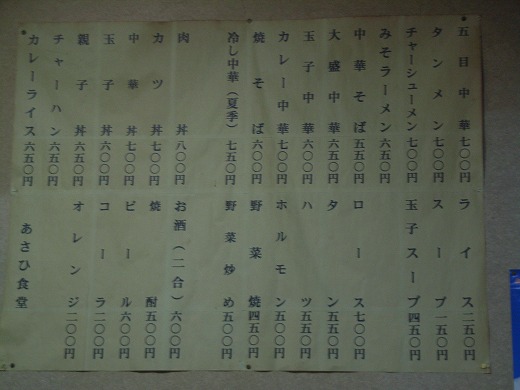 五目中華七〇〇円
タンメン七〇〇円
チャーシューメン七〇〇円
みそラーメン六五〇円
中華そば五五〇円
大盛中華六五〇円
玉子中華六〇〇円
カレー中華七〇〇円
焼そば六〇〇円
冷し中華(夏季)七五〇円
肉丼八〇〇円
カツ丼七〇〇円
中華丼七〇〇円
玉子丼六〇〇円
親子丼六五〇円
チャーハン六五〇円
カレーライス六五〇円
ライス二五〇円
スープ一五〇円
玉子スープ四五〇円
ロース七〇〇円
タン五五〇円
ハツ五五〇円
ホルモン五〇〇円
野菜焼四五〇円
野菜炒め五〇〇円
お酒(二合)六〇〇円
焼酎五〇〇円
ビール六〇〇円
コーラ二〇〇円
オレンジ二〇〇円
あさひ食堂